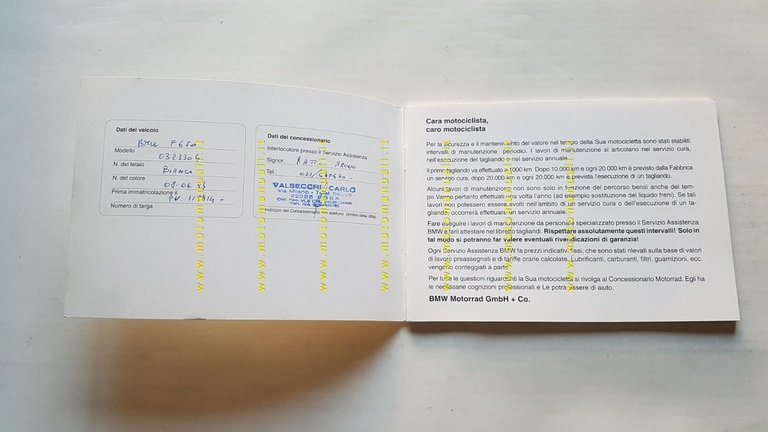 Dati del veicolo
BMW F 650
Modello
0323304
N. del telaio
BIANCO
N. del colore
08.06.
Prima immatricolazione il
PV.
Numero di targa
Dati del concessionario
Interlocutore presso il Servizio Assistenza
Signor:
Tel.:
VALSECCHI CARLO
Via Milano
22036 ERBA
Indirizzo del Concessionario con telefono (timbro della ditta)
Cara motociclista,
caro motociclista
Per la sicurezza e il mantenimento del valore nel tempo della Sua motocicletta sono stati stabiliti
intervalli di manutenzione periodici. I lavori di manutenzione si articolano nel servizio cura,
nell'esecuzione del tagliando e nel servizio annuale.
Il primo tagliando va effettuato a 1000 km. Dopo 10.000 km e ogni 20.000 km è previsto dalla Fabbrica
un servizio cura, dopo 20.000 km e ogni 20.000 km è prevista l'esecuzione di un tagliando.
Alcuni lavori di manutenzione non sono solo in funzione del percorso bensì anche del tem-
po. Vanno pertanto effettuati una volta l'anno (ad esempio sostituzione del liquido freni). Se tali
lavori non potessero essere svolti nell'ambito di un servizio cura o dell'esecuzione di un ta-
gliando, occorrerà effettuare un servizio annuale.
Fare eseguire i lavori di manutenzione da personale specializzato presso il Servizio Assistenza
BMW e farli attestare nel libretto tagliandi. Rispettare assolutamente questi intervalli! Solo in
tal modo si potranno far valere eventuali rivendicazioni di garanzia!
Ogni Servizio Assistenza BMW fa prezzi indicativi fissi, che sono stati rilevati sulla base di valori
di lavoro preassegnati e di tariffe orarie calcolate. Lubrificanti, carburanti, filtri, guarnizioni, ecc.
vengono conteggiati a parte.
Per tutte le questioni riguardanti la Sua motocicletta si rivolga al Concessionario Motorrad. Egli ha
le necessarie cognizioni professionali e Le potrà essere di aiuto.
BMW Motorrad GmbH + Co.